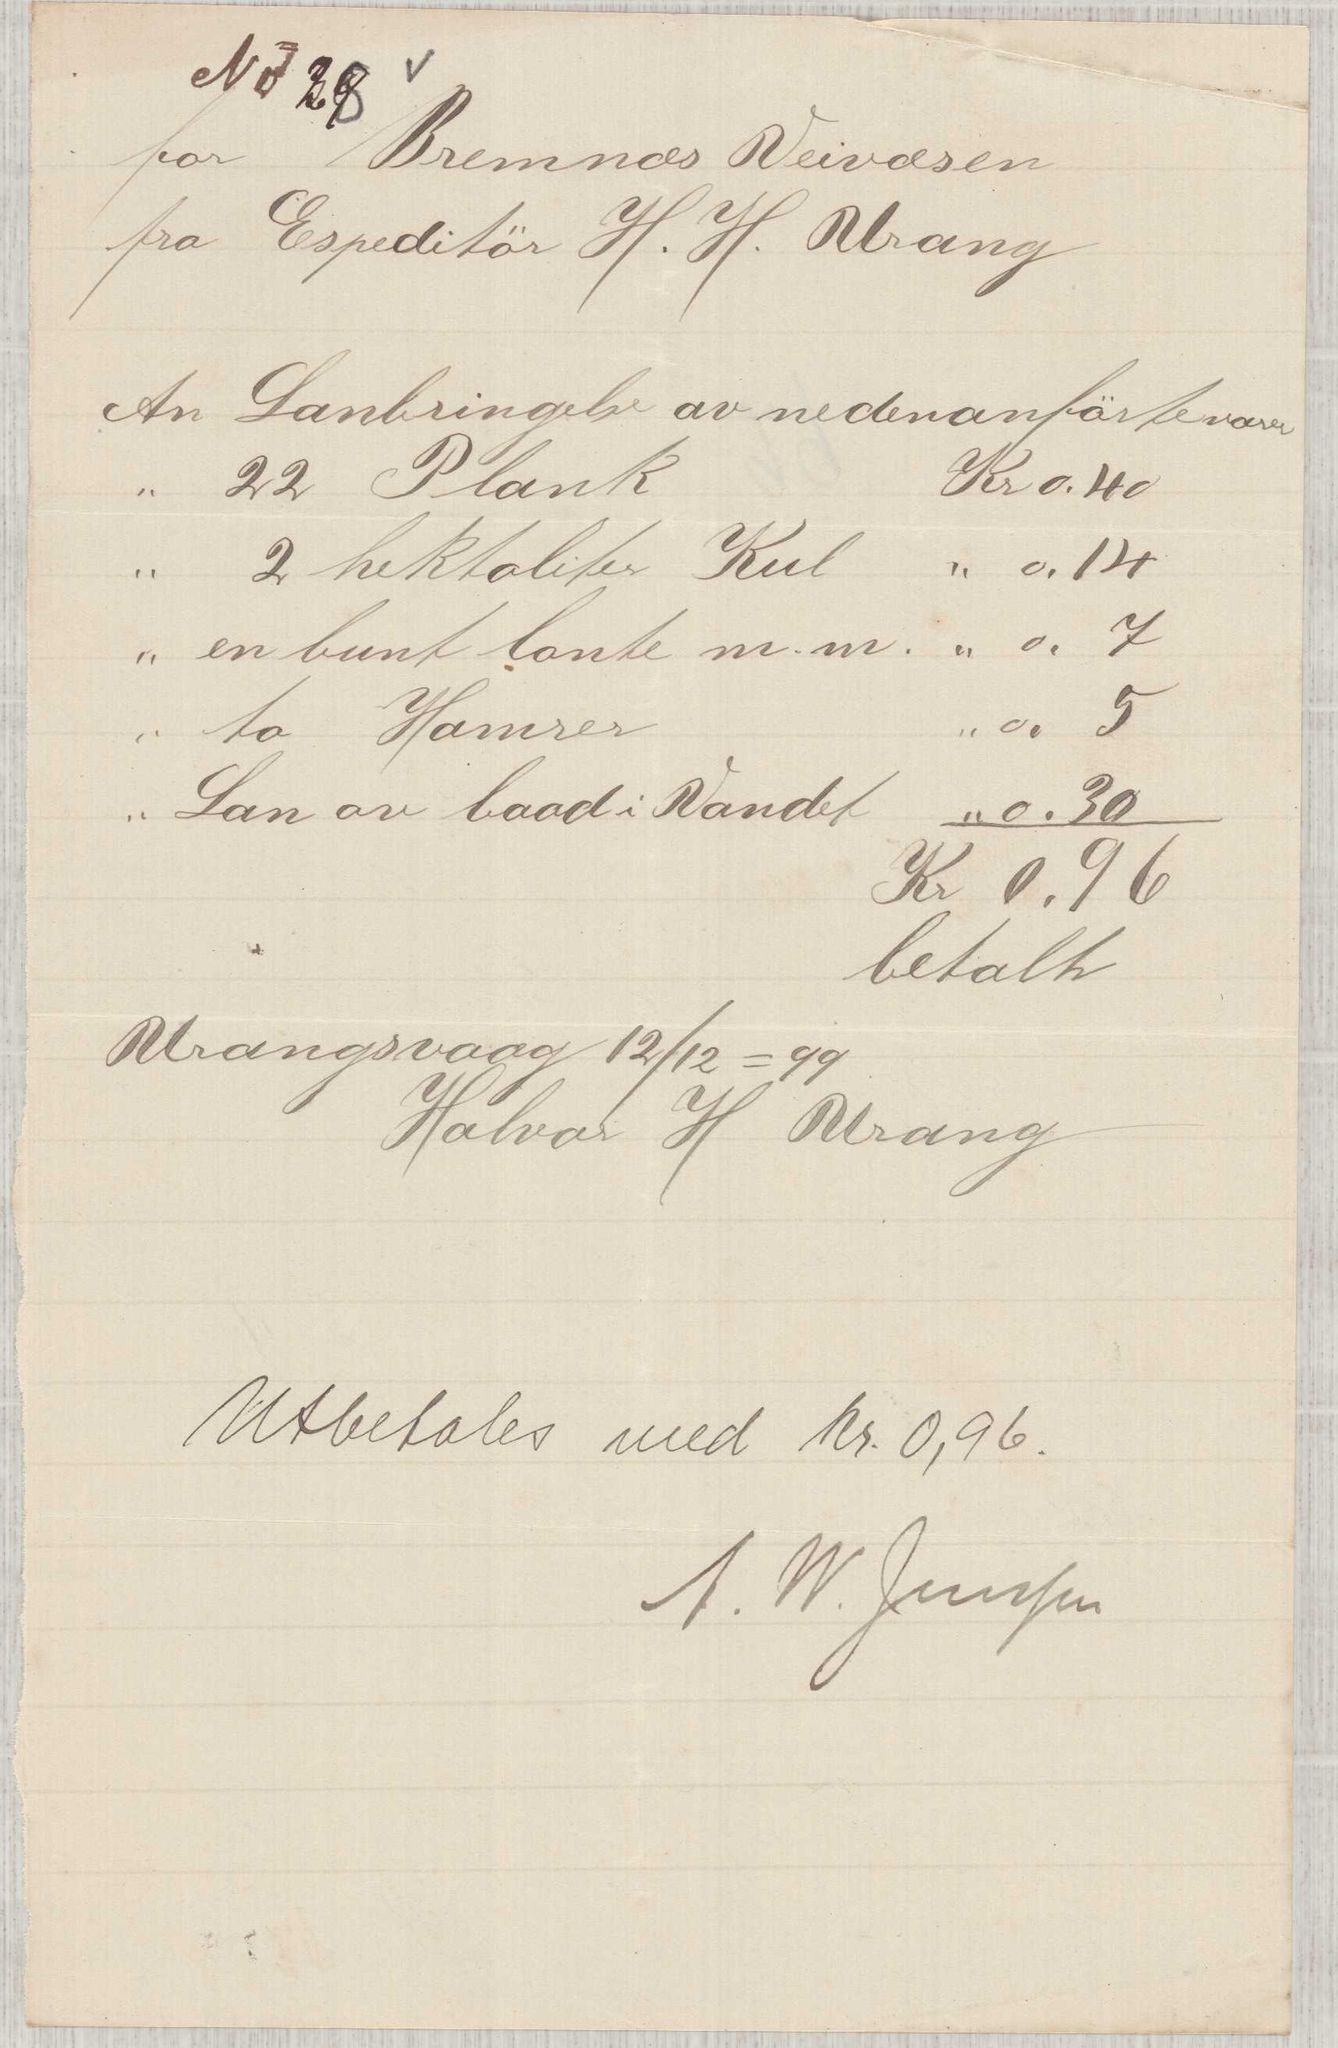 No 28 v
for Bremnæs Veivæsen
fra Espeditör H. H. Urang
An Lanbringelse av nedenanförte varer
" 22 Plank Kr 0.40
" 2 hektoliter Kul " 0.14
" en bunt lonte m.m. " 0. 7
" to Hamrer " 0. 5
" Lan av baad i Vandet " 0.30
Kr 0.96
betalt
Urangsvaag 12/12 = 99
Halvor H Urang
Utbetales med kr. 0,96.
A. W. Jensen